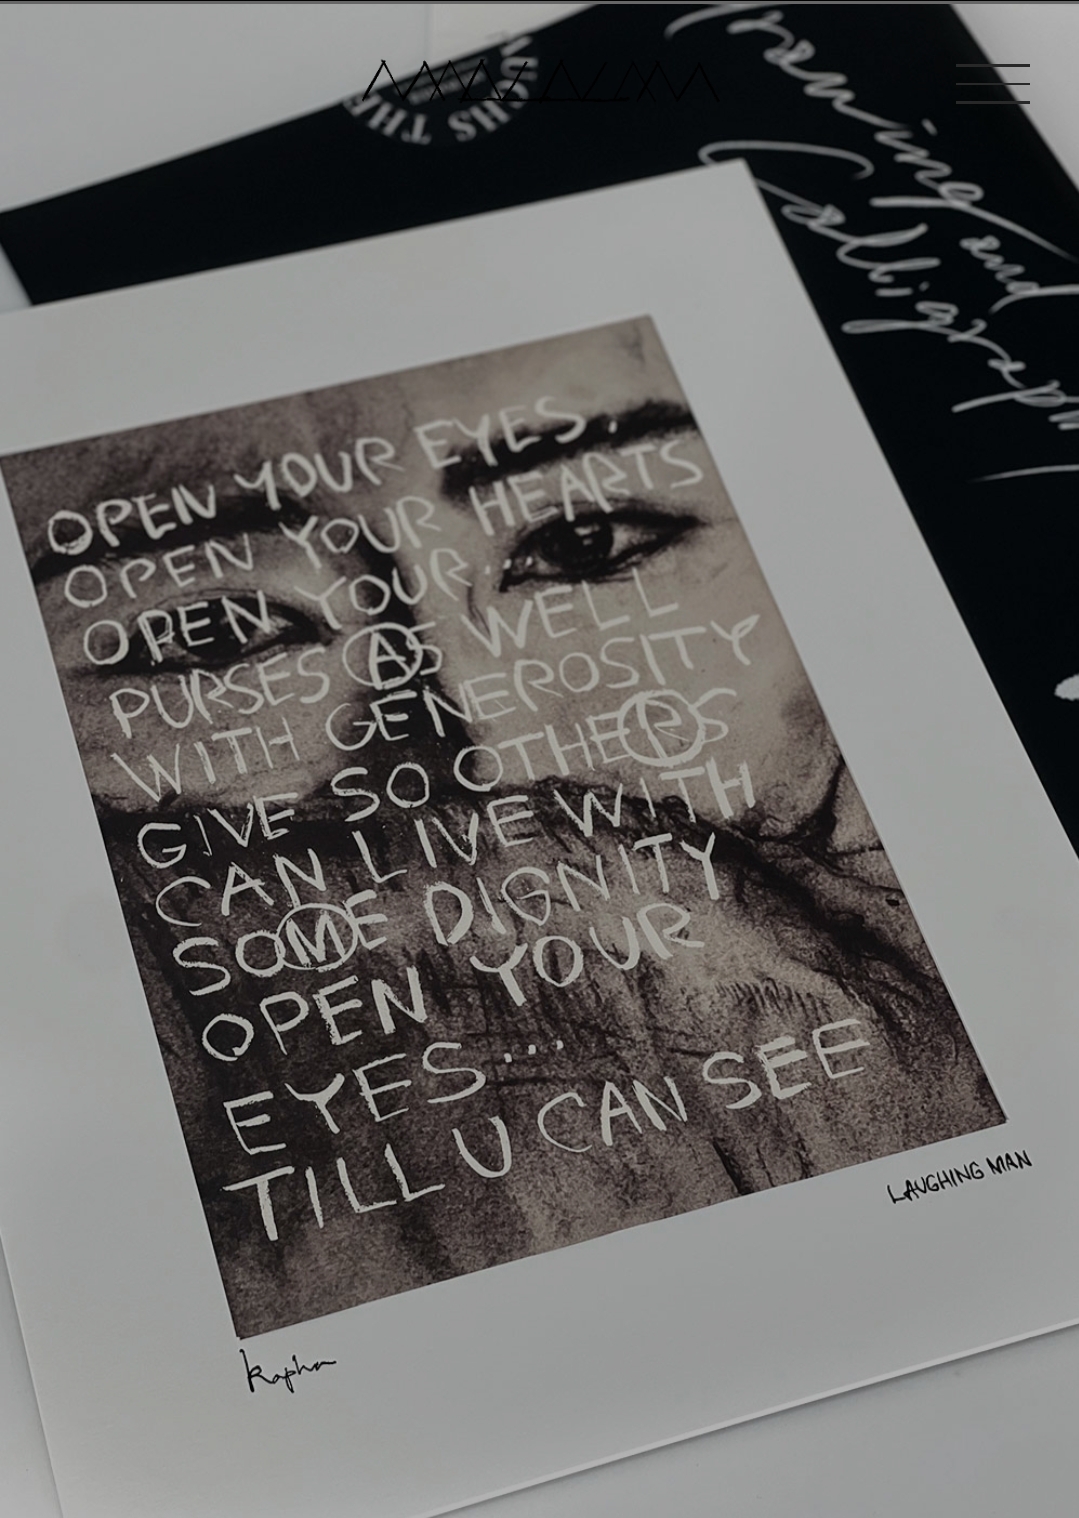 THE
Drawing and
Calligraphy
OPEN YOUR EYES,
OPEN YOUR HEARTS
OPEN YOUR...
PURSES AS WELL
WITH GENEROSITY
GIVE SO OTHERS
CAN LIVE WITH
SOME DIGNITY
OPEN YOUR
EYES...
TILL U CAN SEE
LAUGHING MAN
Kapha